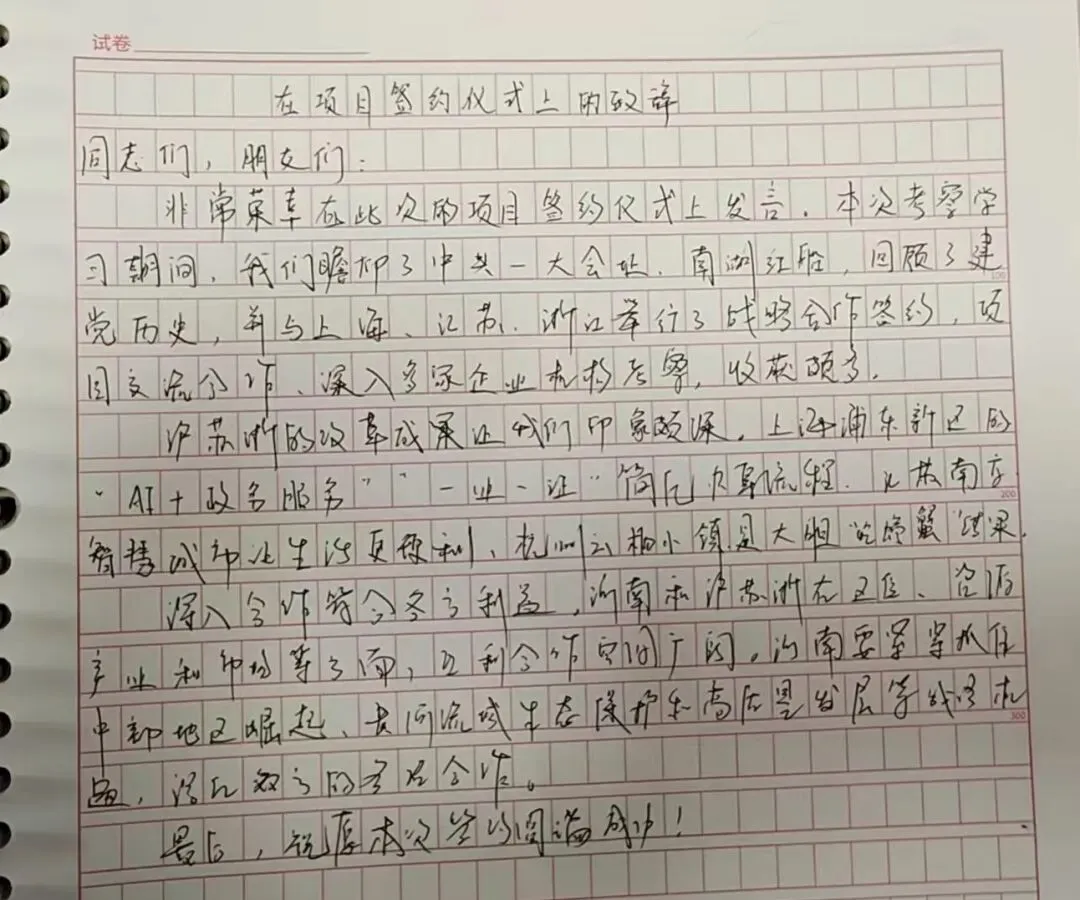 试卷
在项目签约仪式上的致辞
同志们，朋友们：
非常荣幸在此次的项目签约仪式上发言。本次考察学
习期间，我们瞻仰了中共一大会址、南湖红船，回顾了建
党历史，并与上海、江苏、浙江举行了战略合作签约，项
目交流合作、深入多家企业机构考察，收获颇多。
沪苏浙的改革成果让我们印象颇深。上海浦东新区的
“AI+政务服务”“一业一证”简化办事流程、江苏南京
智慧城市让生活更便利、杭州云栖小镇是大胆“吃螃蟹”结果。
深入合作符合各方利益，河南和沪苏浙在区位、资源
产业和市场等方面，互利合作空间广阔。河南要紧紧抓住
中部地区崛起、黄河流域生态保护和高质量发展等战略机
遇，深化双方的多层合作。
最后，祝愿本次签约圆满成功！
100
200
300